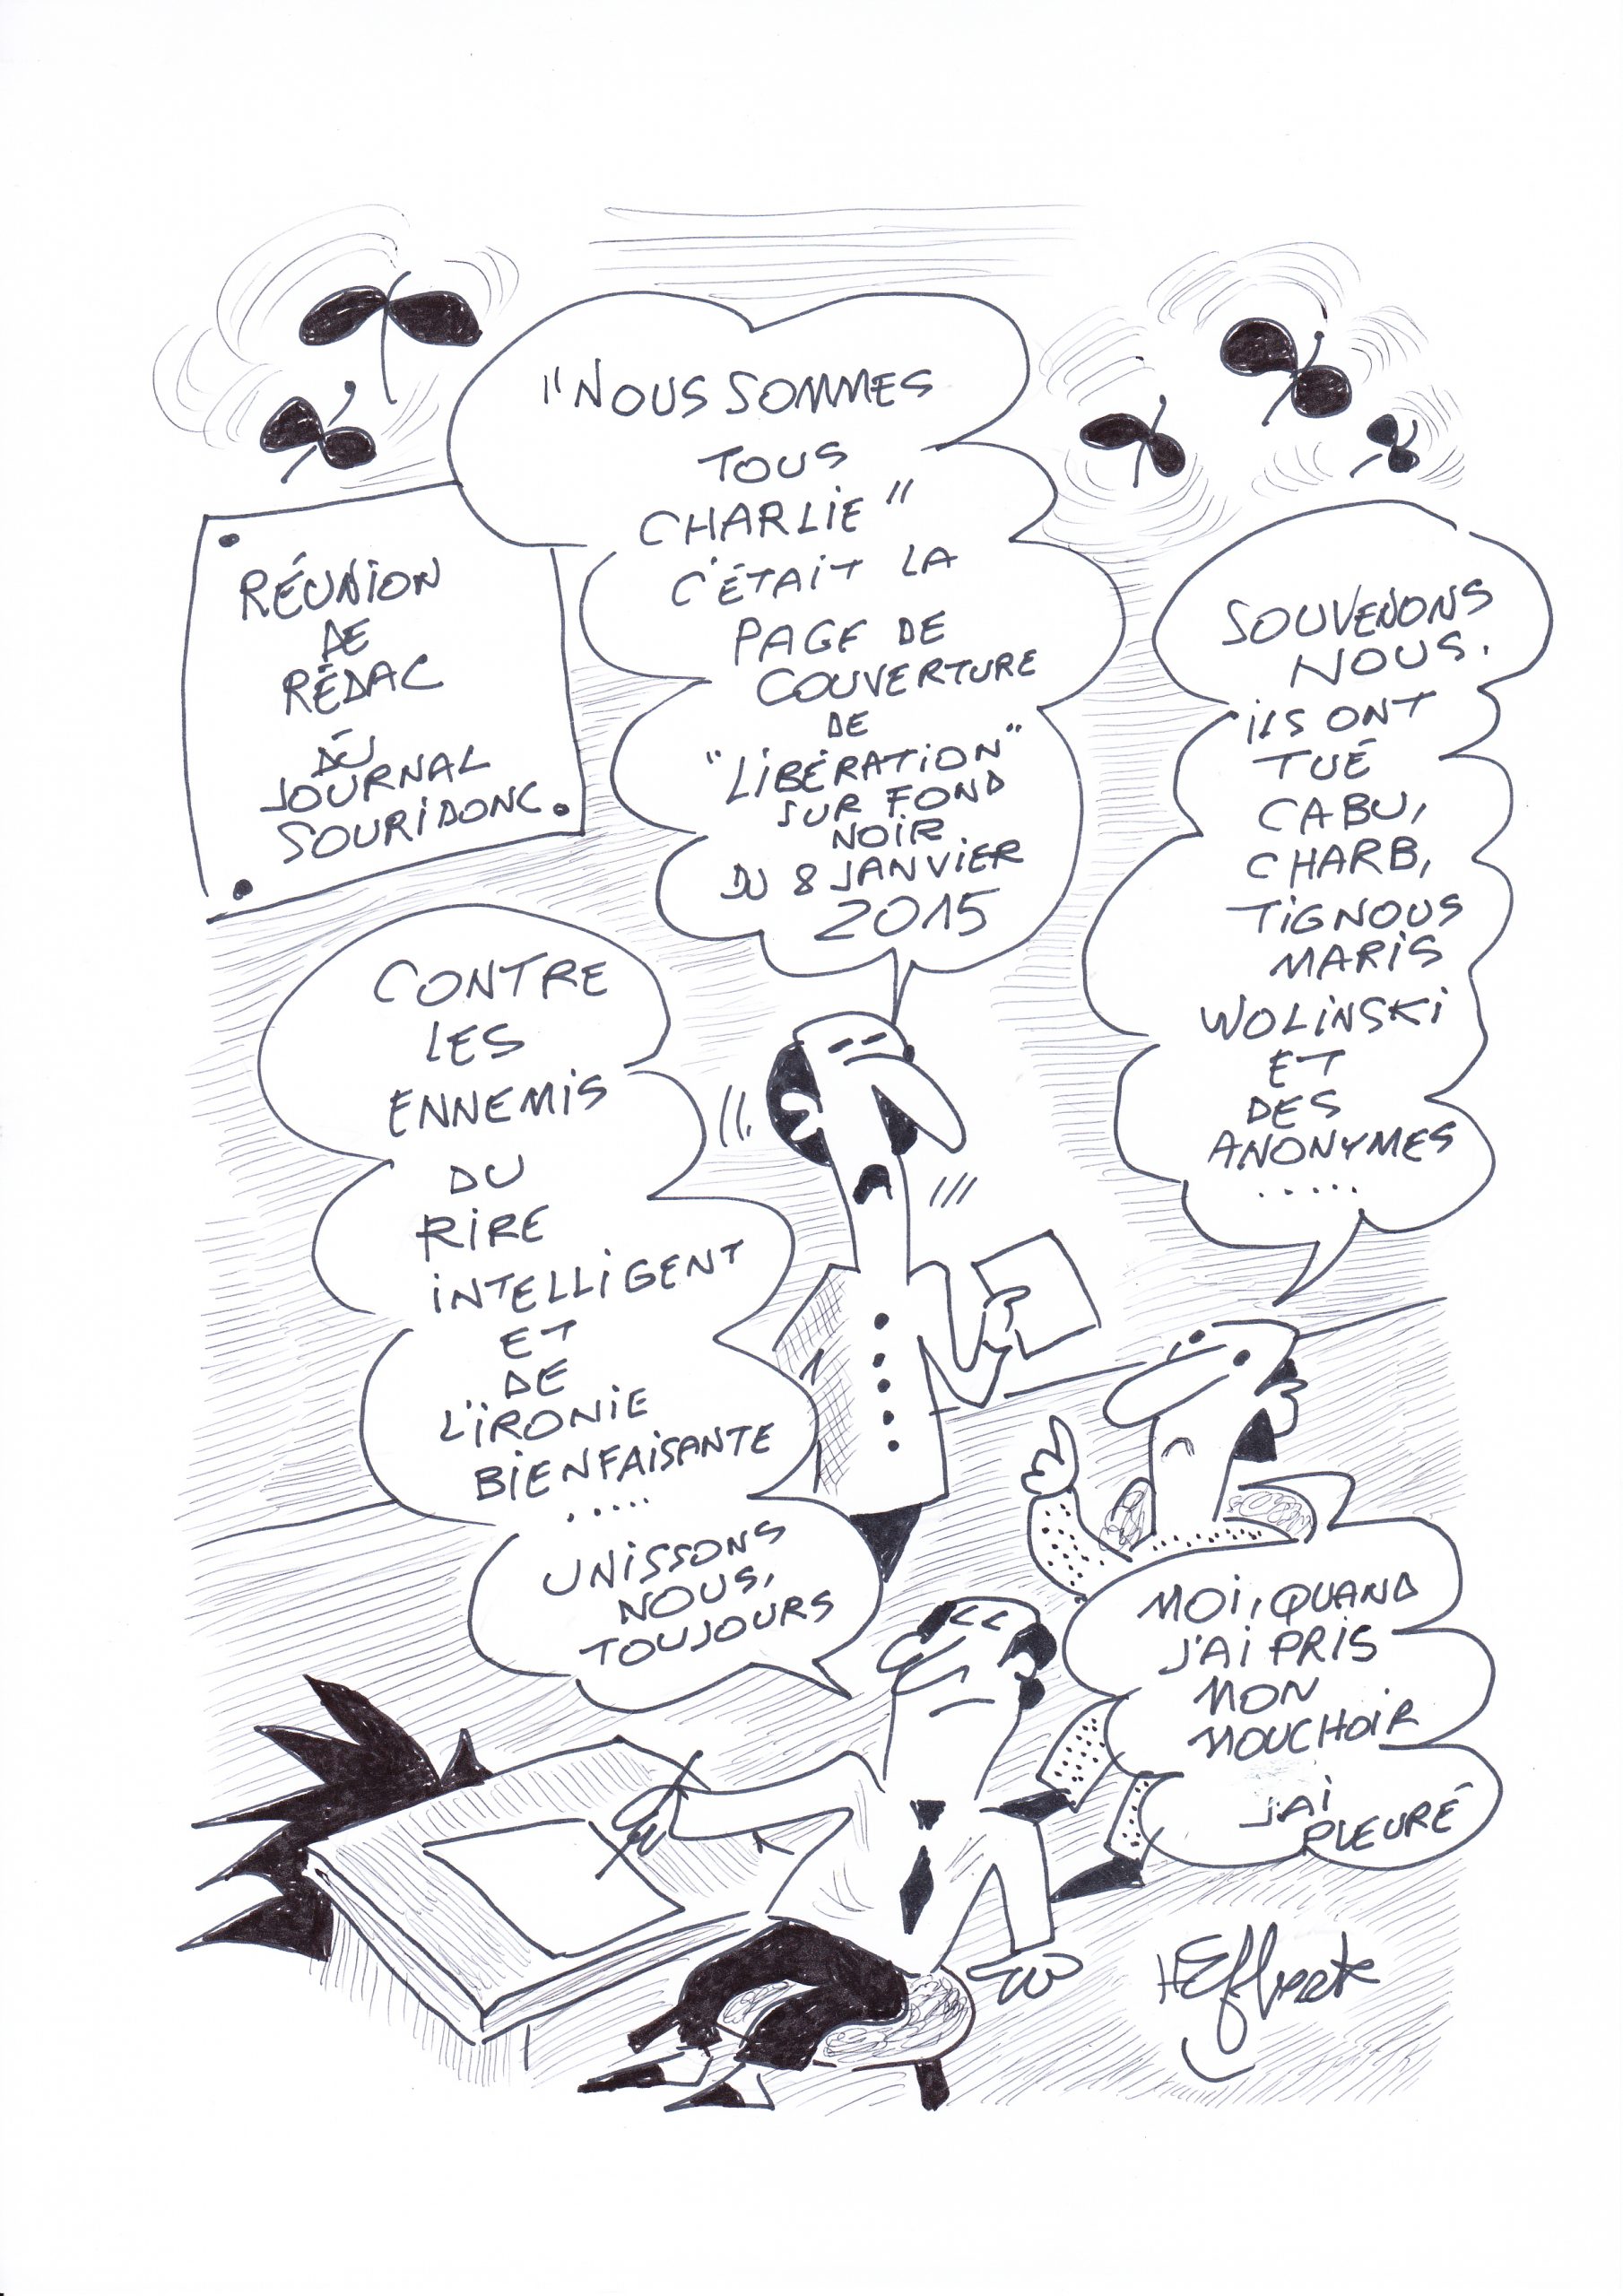 RÉUNION
DE
RÉDAC
DU
JOURNAL
SOURIDONC.
"NOUS SOMMES
TOUS
CHARLIE"
C'ÉTAIT LA
PAGE DE
COUVERTURE
DE
"LIBÉRATION"
SUR FOND
NOIR
DU 8 JANVIER
2015
SOUVENONS
NOUS.
ILS ONT
TUÉ
CABU,
CHARB,
TIGNOUS
MARIS
WOLINSKI
ET
DES
ANONYMES
.....
CONTRE
LES
ENNEMIS
DU
RIRE
INTELLIGENT
ET
DE
L'IRONIE
BIENFAISANTE
....
UNISSONS
NOUS,
TOUJOURS
MOI, QUAND
J'AI PRIS
MON
MOUCHOIR
J'AI
PLEURÉ